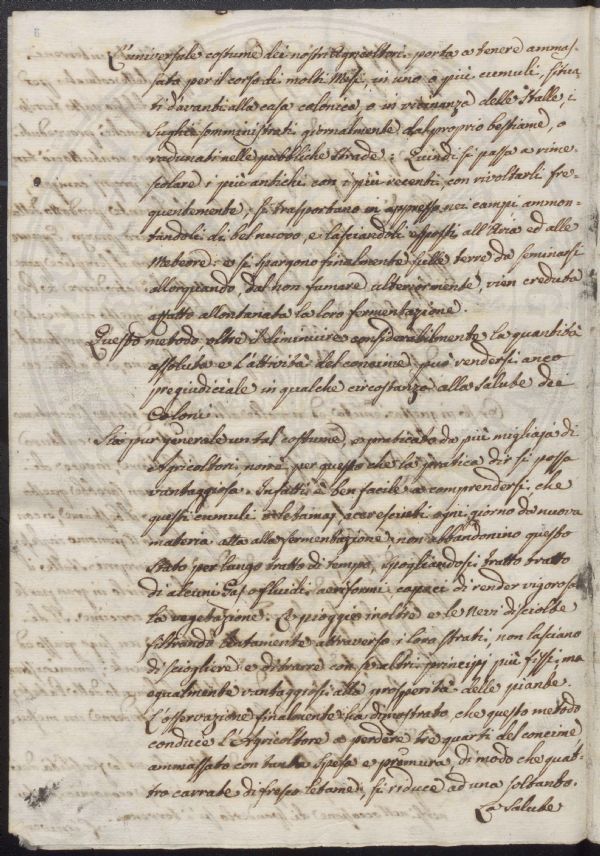 L'universale costume dei nostri Agricoltori porta a tenere ammas-
sata per il corso di molti Mesi, in uno o più cumuli, situa-
ti davanti alla casa colonica, o in vicinanza delle Stalle, i
Sughi somministrati giornalmente dal proprio bestiame, o
radunati nelle pubbliche strade: Quindi si passa a rime-
scolare i più antichi con i più recenti, con rivoltarli fre-
quentemente; si trasportano in appresso nei campi ammon-
tandoli di bel nuovo, e lasciandoli esposti all'Aria ed alle
Meteore: e si spargono finalmente sulle terre da seminarsi
allorquando, dal non fumare ulteriormente, vien creduta
affatto allontanata la loro fermentazione.
Questo metodo oltre il diminuire considerabilmente la quantità
assoluta e l'attività del concime, può rendersi anco
pregiudiciale in qualche circostanza alla salute dei
Coloni.
Sia pur generale un tal costume, e praticato da più migliaja di
Agricoltori, non è per questo che la pratica dir si possa
vantaggiosa. Infatti è ben facile a comprendersi che
questi cumuli letamaj accresciuti ogni giorno da nuova
materia atta alla fermentazione, non abbandonino questo
stato per lungo tratto di tempo, spogliandosi tratto tratto
di alcuni Gas o fluidi aeriformi capaci di render vigorosa
la vegetazione. Le pioggie inoltre e le Nevi disciolte
filtrando lentamente attraverso i loro strati, non lasciano
di sciogliere e di trarre con se altri principj più fissi, ma
egualmente vantaggiosi alla prosperità delle piante.
L'osservazione finalmente ha dimostrato che questo metodo
conduce l'Agricoltore a perdere tre quarti del concime
ammassato con tanta spesa e premura, di modo che quat-
tro carrate di fresco letame, si riduce ad una soltanto.
La salute